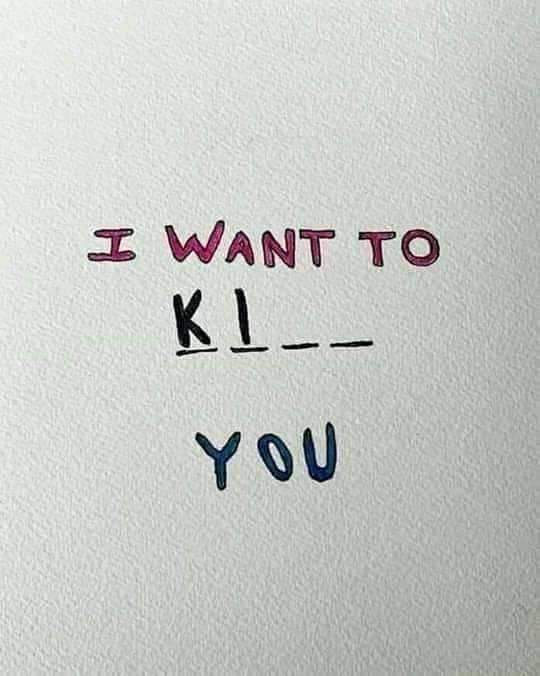 I WANT TO
K I _ _
YOU